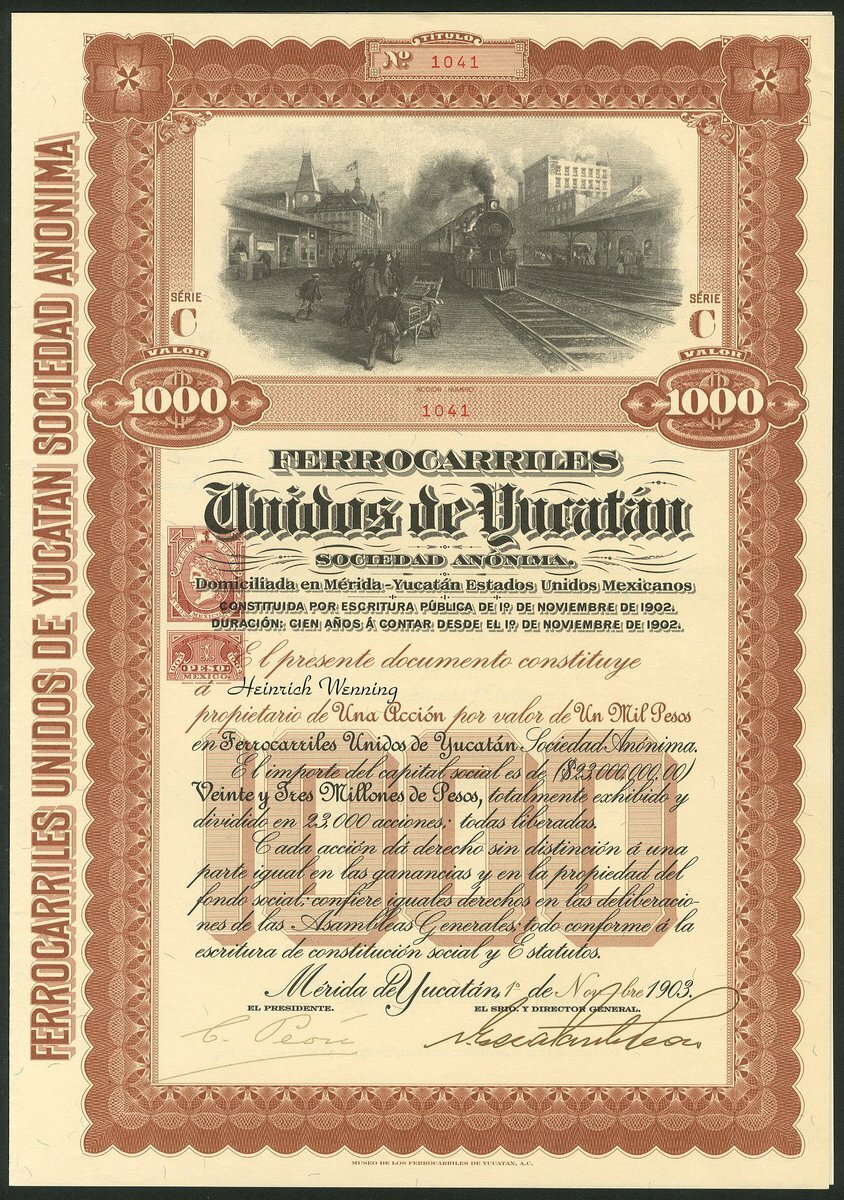 TÍTULO
Nº 1041
FERROCARRILES UNIDOS DE YUCATAN SOCIEDAD ANONIMA
SÉRIE
C
SÉRIE
C
VALOR
1000
VALOR
1000
ACCION NUMERO
1041
FERROCARRILES
Unidos de Yucatán
SOCIEDAD ANÓNIMA.
Domiciliada en Mérida-Yucatán Estados Unidos Mexicanos
CONSTITUIDA POR ESCRITURA PÚBLICA DE 1º DE NOVIEMBRE DE 1902.
DURACIÓN: CIEN AÑOS Á CONTAR DESDE EL 1º DE NOVIEMBRE DE 1902.
UN PESO
MEXICO
El presente documento constituye
á Heinrich Wenning
propietario de Una Acción por valor de Un Mil Pesos
en Ferrocarriles Unidos de Yucatán Sociedad Anónima.
El importe del capital social es de ($23.000,000,00)
Veinte y Tres Millones de Pesos, totalmente exhibido y
dividido en 23,000 acciones; todas liberadas.
Cada acción dá derecho sin distinción á una
parte igual en las ganancias y en la propiedad del
fondo social; confiere iguales derechos en las deliberacio-
nes de las Asambleas Generales; todo conforme á la
escritura de constitución social y Estatutos.
1000
Mérida de Yucatán, 1º de Novbre 1903.
EL PRESIDENTE.
EL SRIO. Y DIRECTOR GENERAL.
C. Peón
MUSEO DE LOS FERROCARRILES DE YUCATAN, A.C.